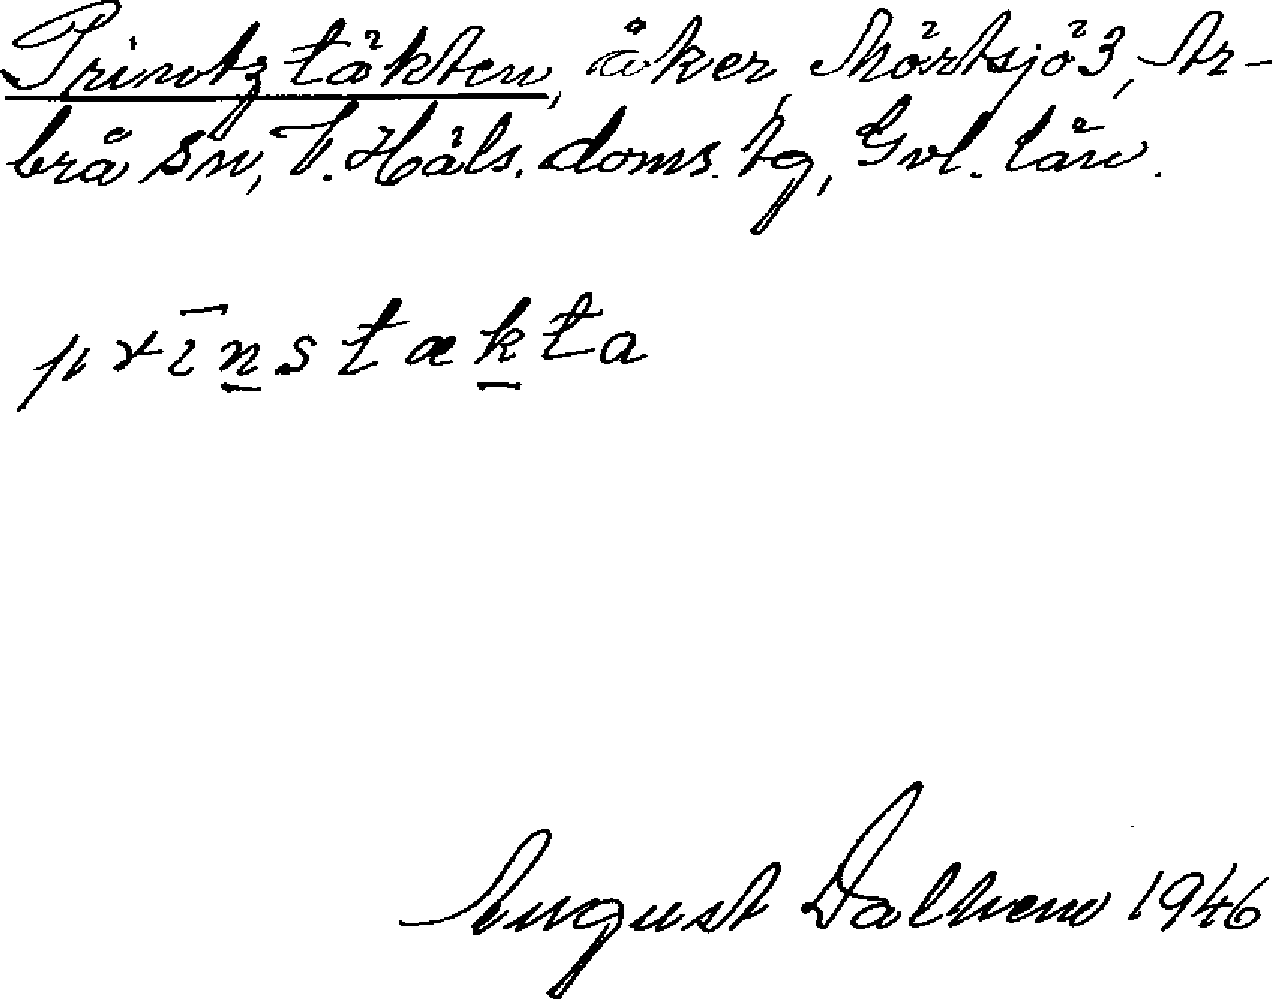 Printztäkten, åker, Mörtsjö 3, Ar-
brå sn, V. Häls. doms. tg, Gvl. län.
prīnstækta
August Dalhem 1946